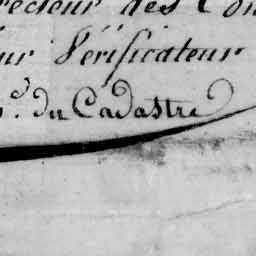 recteur des Con
ur Vérificateur
du Cadastre